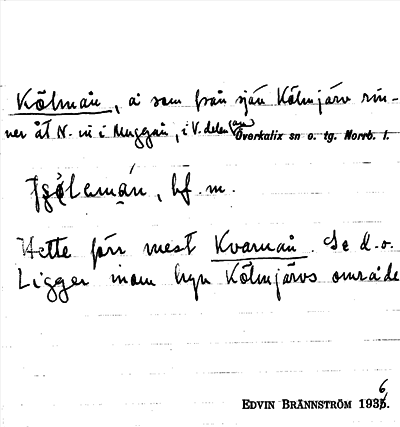 Kölmån, å som från sjön Kölmjärv rin-
ner åt N. in i Muggån, i V. delen av Överkalix sn o. tg. Norrb. l.
bf. m.
Hette förr mest Kvarnån. Se d.o.
Ligger inom byn Kölmjärvs område
EDVIN BRÄNNSTRÖM 1936.